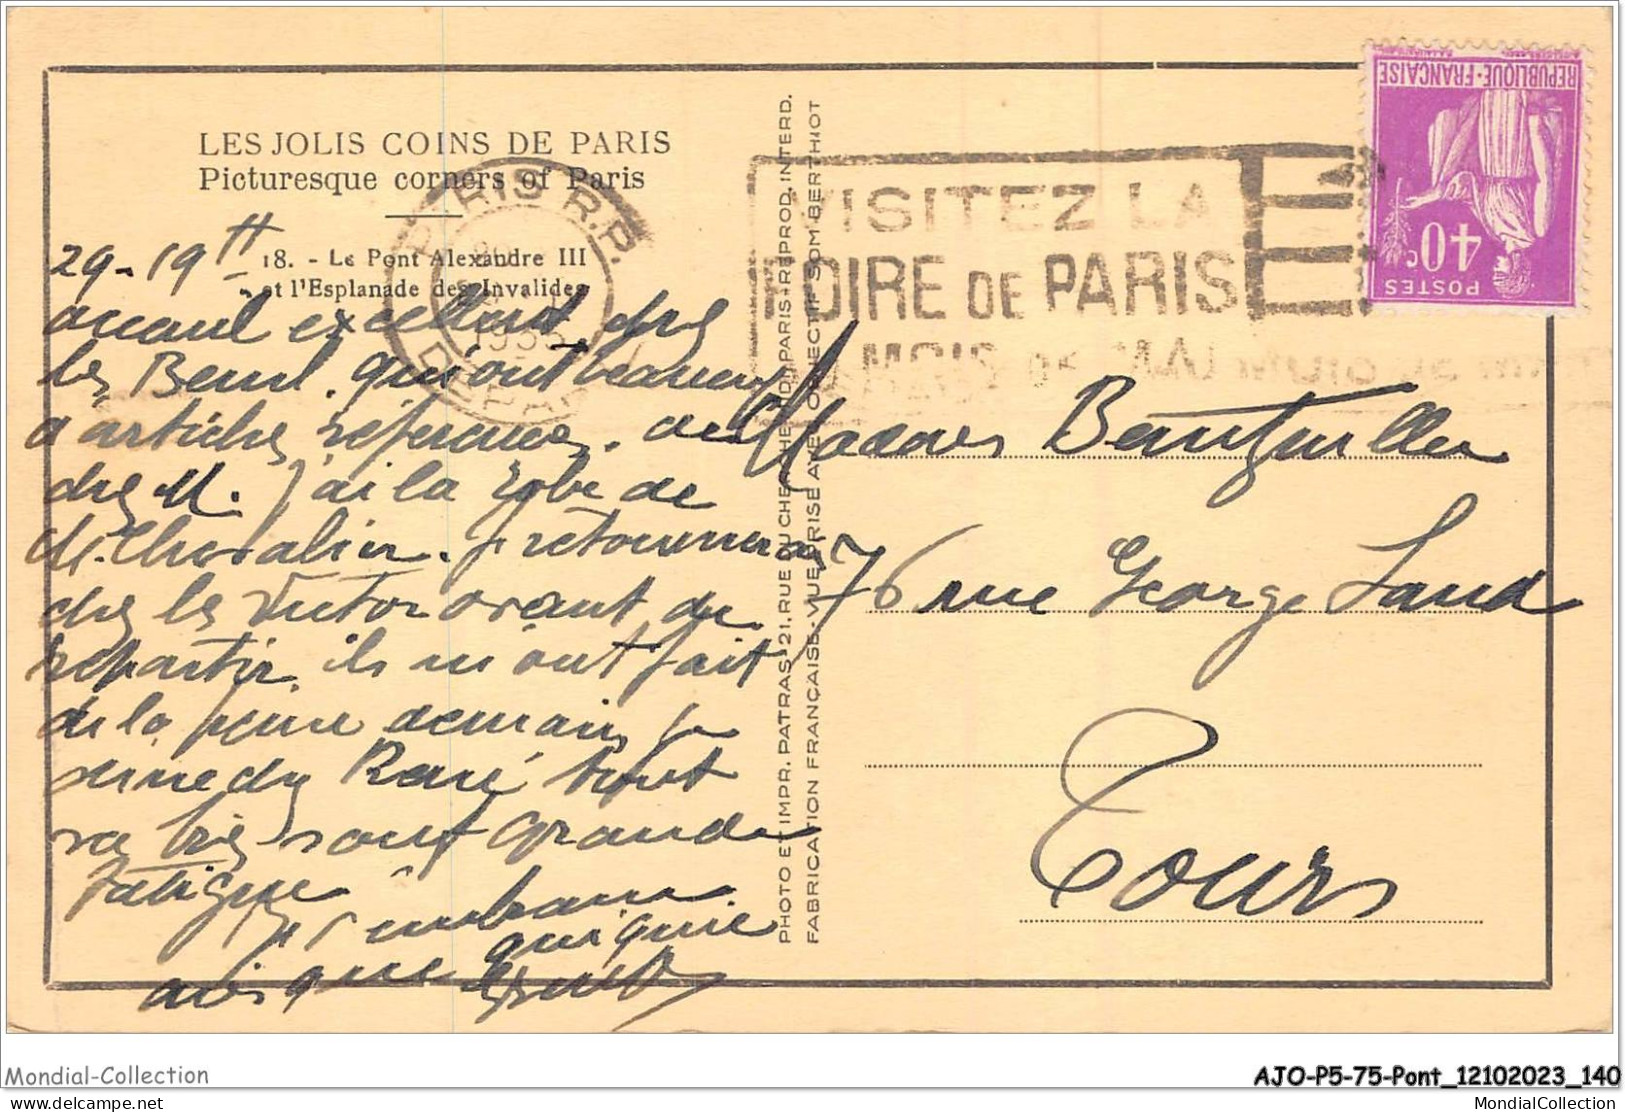 LES JOLIS COINS DE PARIS
Picturesque corners of Paris
18. - Le Pont Alexandre III
et l'Esplanade des Invalides
PARIS R.P.
DEPART
VISITEZ LA
FOIRE DE PARIS
REPUBLIQUE·FRANÇAISE
40c
POSTES
29-19H
accueil excellent chez
les qui ont beaucoup
d'articles références.
chez M. j'ai la robe de
Chevalier. je retournerai
chez les Victor avant de
repartir. ils m'ont fait
de la peine demain je
René tout
va bien sauf grande
fatigue
Je embrasse
ainsi que
PHOTO ET IMPR. PATRAS, 21, RUE DU CHERCHE MIDI, PARIS · REPROD. INTERD.
FABRICATION FRANÇAISE · VUE PRISE AVEC OBJECTIF SOM-BERTHIOT
76 rue George Sand
Tours
Mondial-Collection
AJO-P5-75-Pont_12102023_140
delcampe.net
MondialCollection